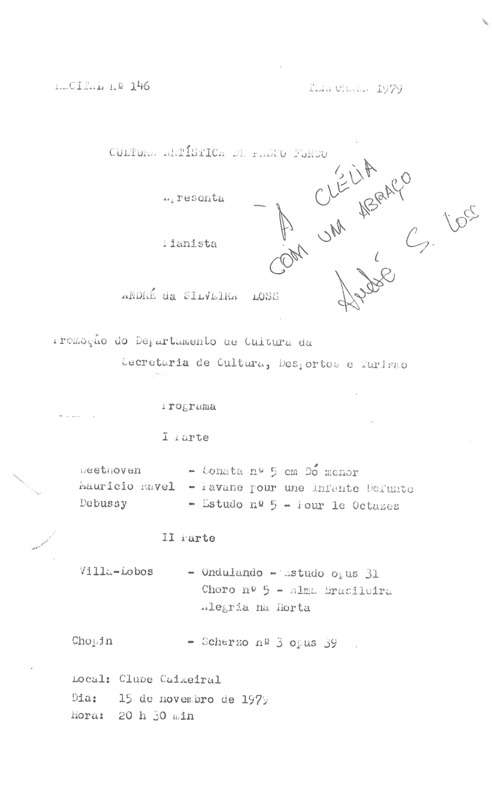 RECITAL Nº 146 TEMPORADA 1979
CULTURA ARTÍSTICA DE PASSO FUNDO
Apresenta
- A CLÉLIA
COM UM ABRAÇO
André S. Loss
Pianista
ANDRÉ da SILVEIRA LOSS
Promoção do Departamento de Cultura da
Secretaria de Cultura, Desportos e Turismo
Programa
I Parte
Beethoven - Sonata nº 5 em Dó menor
Mauricio Ravel - Pavane pour une Infante Defunte
Debussy - Estudo nº 5 - Pour le Octazes
II Parte
Villa-Lobos - Ondulando - Estudo opus 31
Choro nº 5 - Alma Brasileira
Alegria na Horta
Chopin - Scherzo nº 3 opus 39
Local: Clube Caixeiral
Dia: 15 de novembro de 1979
Hora: 20 h 30 min